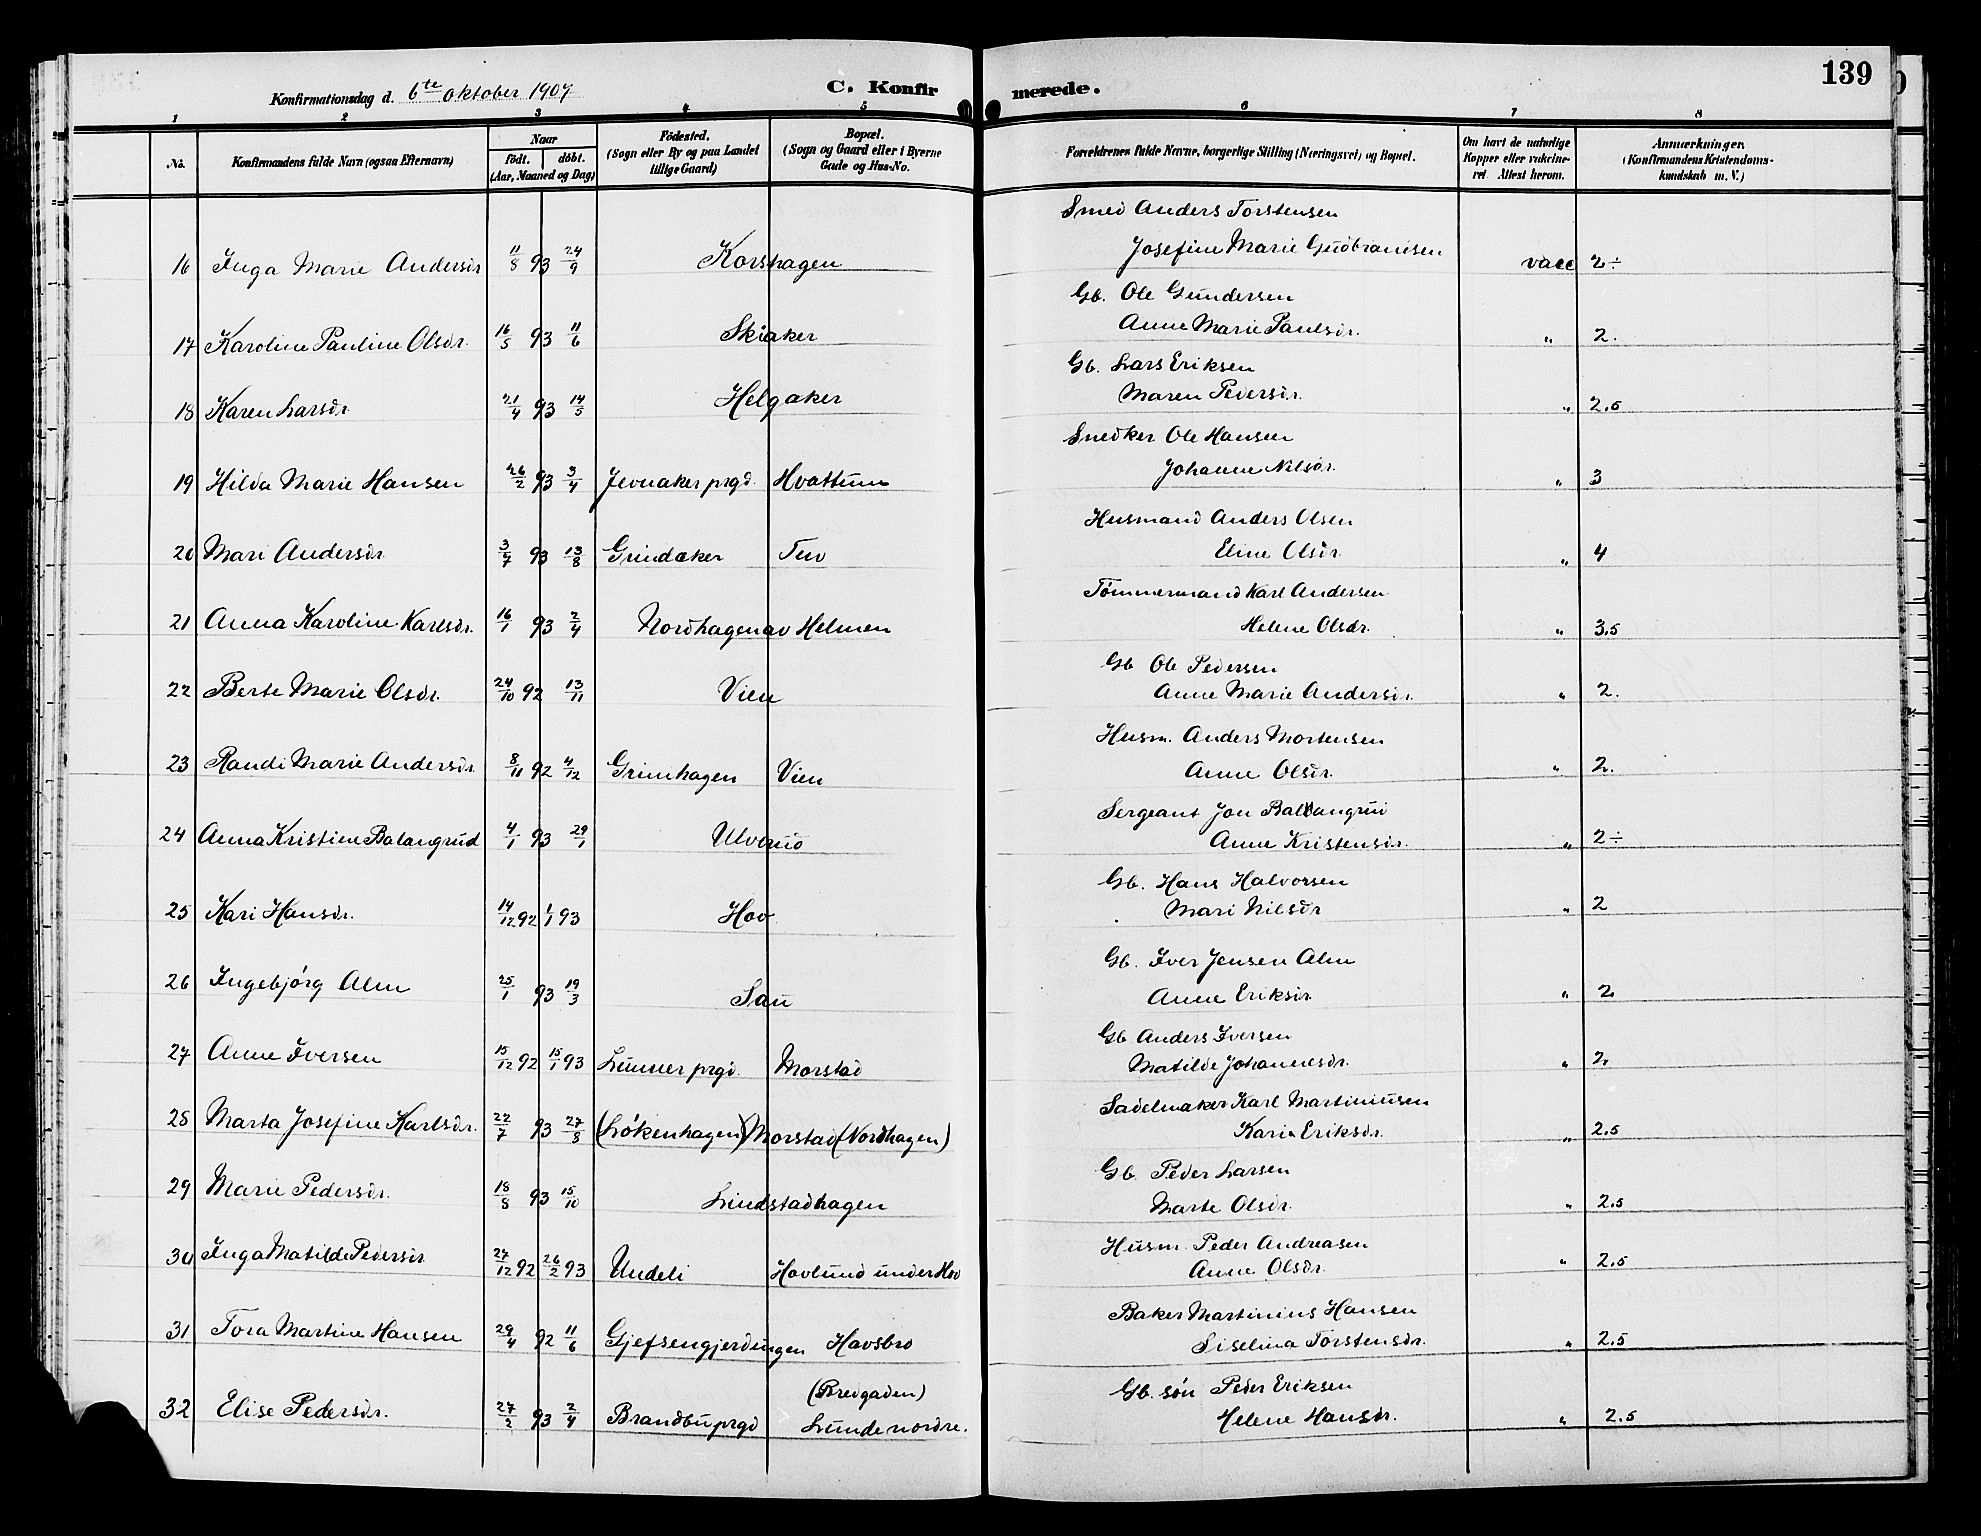 139
Konfirmationsdag d. 6te oktober 1907 C. Konfirmerede.
1 2 3 4 5 6 7 8
No. Konfirmandens fulde Navn (ogsaa Efternavn) Naar födt. döbt. (Aar, Maaned og Dag) Födested. (Sogn eller By og paa Landet tillige Gaard) Bopæl. (Sogn og Gaard eller i Byerne Gade og Hus-No. Forældrenes fulde Navne, borgerlige Stilling (Næringsvei) og Bopæl. Om havt de naturlige Kopper eller vakcineret. Attest herom. Anmærkninger. (Konfirmandens Kristendomskundskab m. V.)
Smed Anders Torstensen
16 Inga Marie Andersdr 11/8 93 24/9 Korshagen Josefine Marie Gudbrandsen vacc 2÷
Gb. Ole Gundersen
17 Karoline Pauline Olsdr. 16/5 93 11/6 Skiaker Anne Marie Paulsdr. " 2.
Gb. Lars Eriksen
18 Karen Larsdr 21/4 93 14/5 Helgaker Maren Pedersdr. " 2.5
Snedker Ole Hansen
19 Hilda Marie Hansen 26/2 93 3/4 Jevnaker prgd. Hvattum Johanne Nilsdr. " 3
Husmand Anders Olsen
20 Mari Andersdr 3/7 93 13/8 Grindaker Tuv Eline Olsdr. " 4
Tømmermand Karl Andersen
21 Anna Karoline Karlsdr. 16/1 93 2/4 Nordhagen av Helmen Helene Olsdr. " 3.5
Gb Ole Pedersen
22 Berte Marie Olsdr. 24/10 92 13/11 Vien Anne Marie Andersdr. " 2.
Husm. Anders Mortensen
23 Randi Marie Andersdr. 8/11 92 4/12 Grimhagen Vien Anne Olsdr. " 2.
Sergeant Jon Ballangrud
24 Anna Kristine Balangrud 4/1 93 29/1 Ulverud Anne Kristensdr. " 2÷
Gb. Hans Halvorsen
25 Kari Hansdr. 14/12 92 1/1 93 Hov Mari Nilsdr " 2
Gb. Iver Jensen Alm
26 Ingebjørg Alm 25/1 93 19/3 Sau Anne Eriksdr. " 2
Gb Anders Iversen
27 Anne Iversen 15/12 92 15/1 93 Lunner prgd. Morstad Matilde Johannesdr. " 2.
Sadelmaker Karl Martiniusen
28 Marta Josefine Karlsdr. 22/7 93 27/8 (Løkenhagen) Morstad (Nordhagen) Karia Eriksdr. " 2.5
Gb. Peder Larsen
29 Marie Pedersdr. 18/8 93 15/10 Lindstadhagen Marte Olsdr. " 2.5
Husm. Peder Andreasen
30 Inga Matilde Pedersdr 27/12 92 26/2 93 Undeli Hovlund under Hov Anne Olsdr. " 2.5
Baker Martinius Hansen
31 Tora Martine Hansen 29/4 92 11/6 Gjefsengjerdingen Havsbro Siselina Torstensdr. " 2.5
(Bredgaden) Gb. søn Peder Eriksen
32 Elise Pedersdr. 27/2 93 2/4 Brandbu prgd Lunde nordre. Helene Hansdr. " 2.5